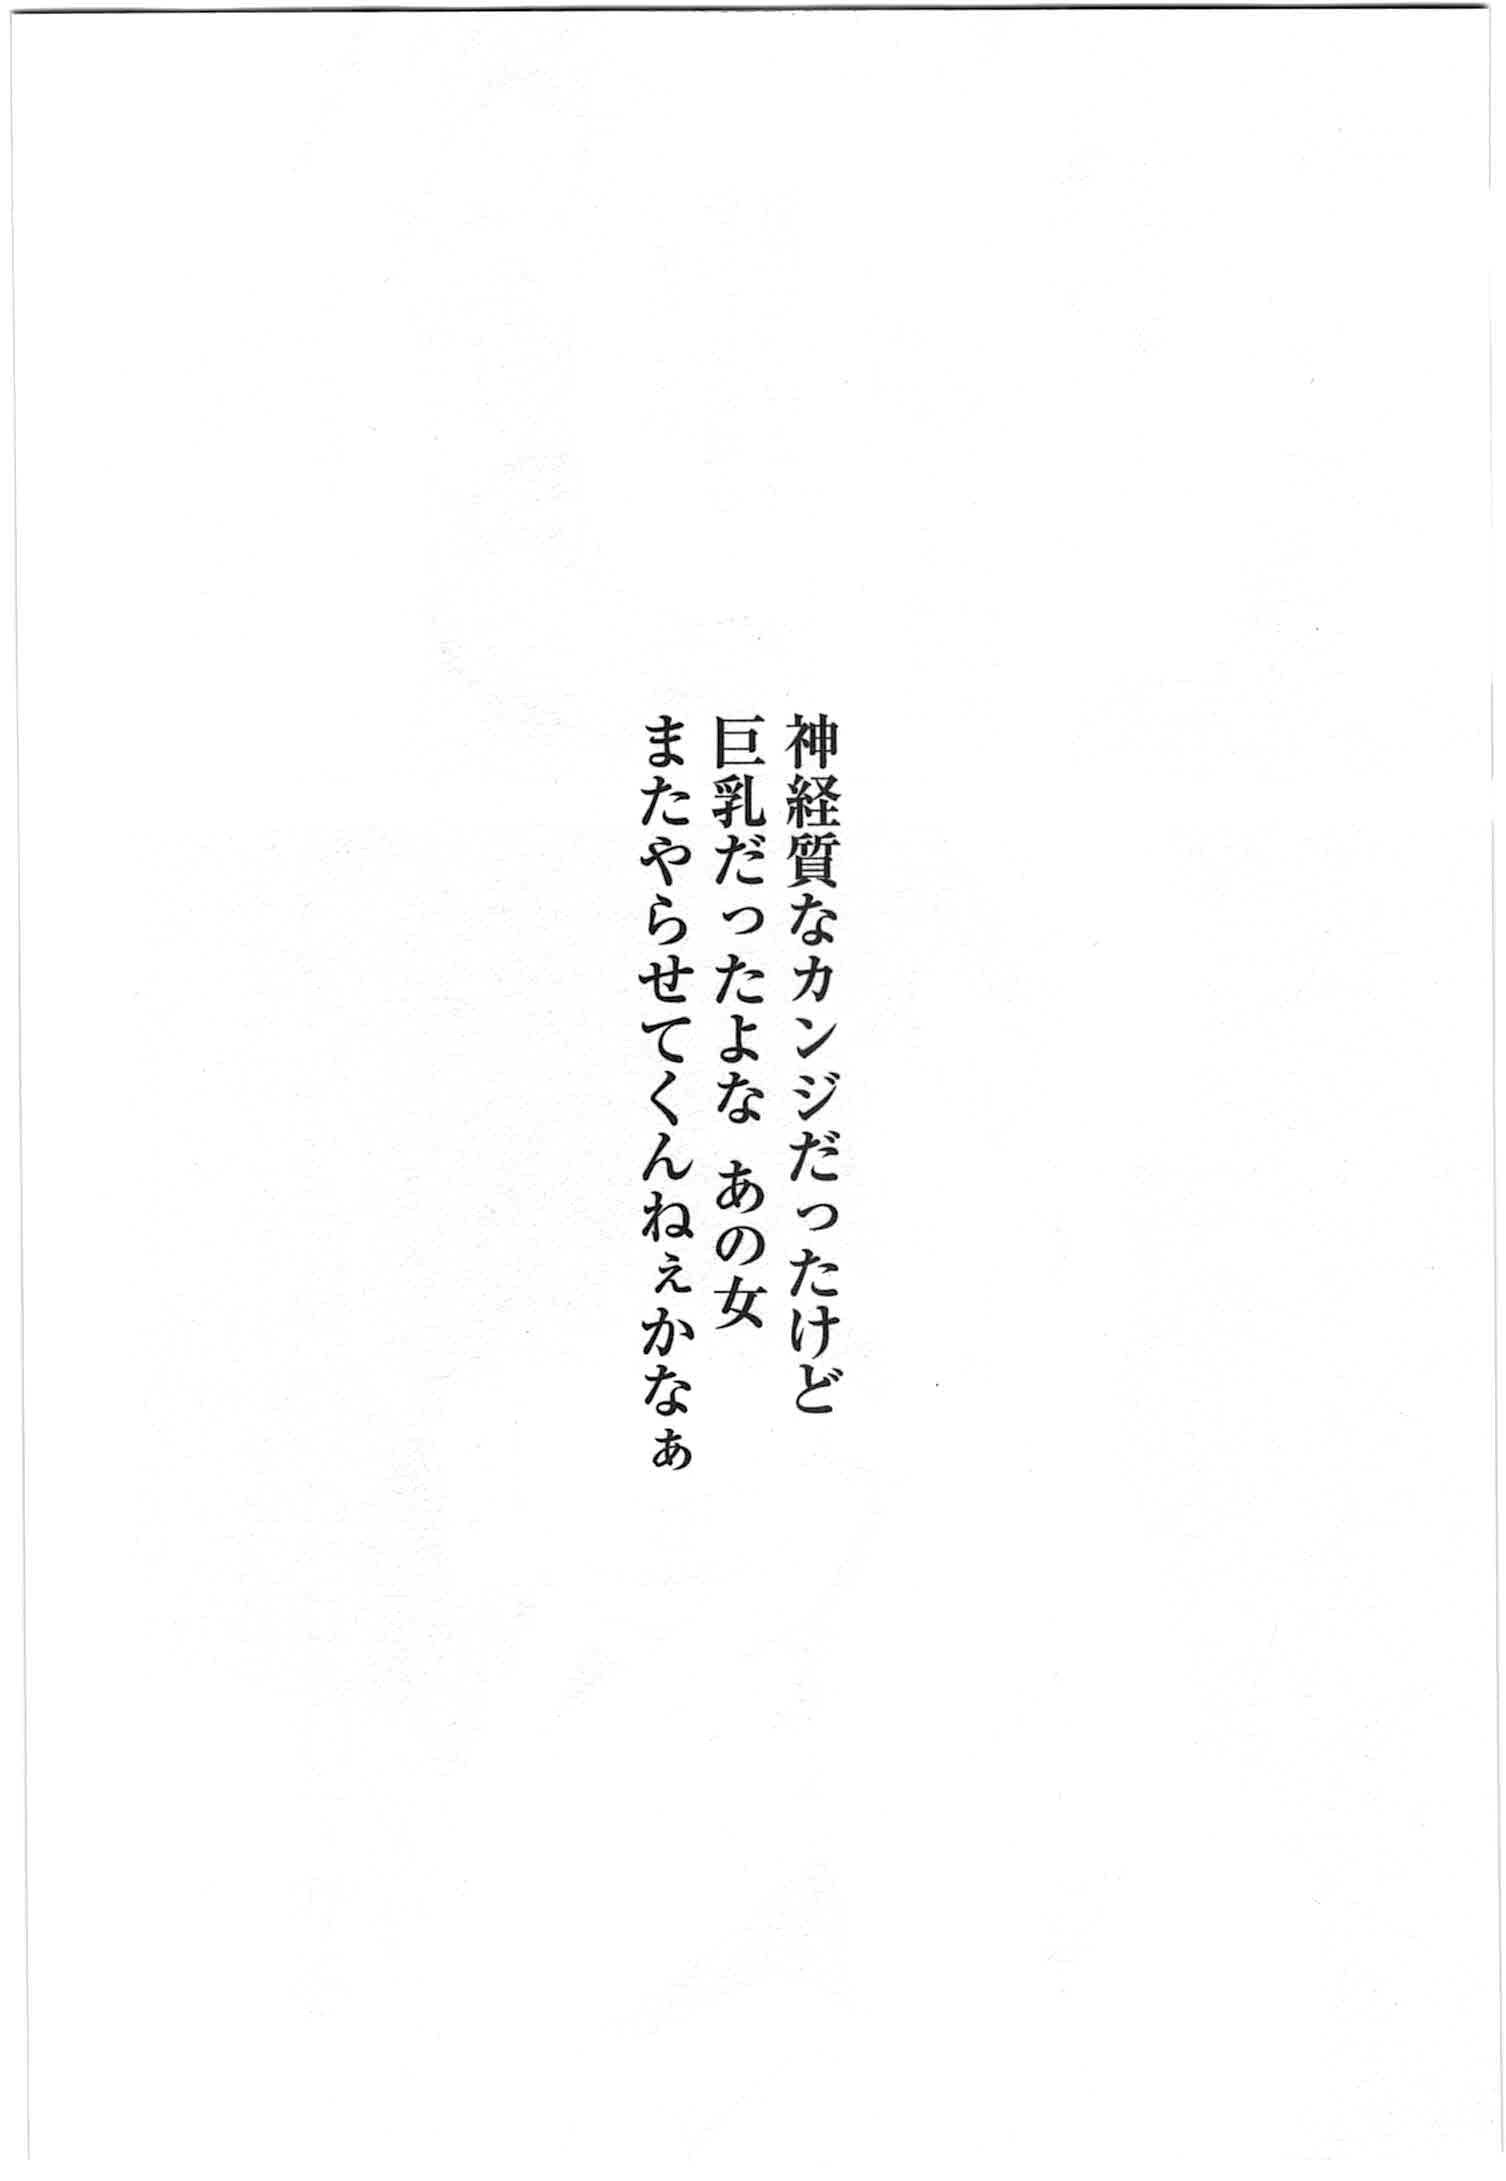 神経質なカンジだったけど
巨乳だったよな あの女
またやらせてくんねぇかなぁ